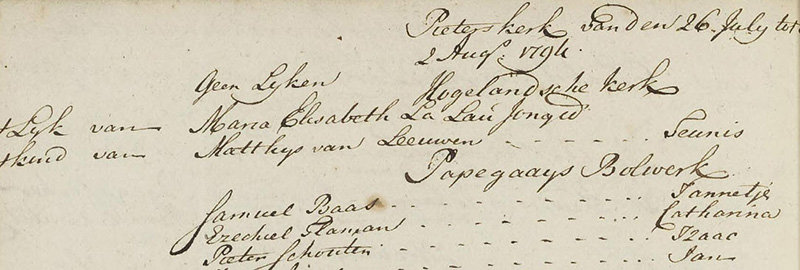 Pieterskerk van den 26. July tot
2 Augs. 1794.
Geen Lyken
Hogelandsche kerk
Lyk van Maria Elisabeth La Lau Jong d
kind van Matthys van Leeuwen - - - - - Teunis
Papegaays Bolwerk
Samuel Baas - - - - - - - Jannetje
Ezechiel - - - - - - - Catharina
Pieter Schouten - - - - - - - Izaac
Jan